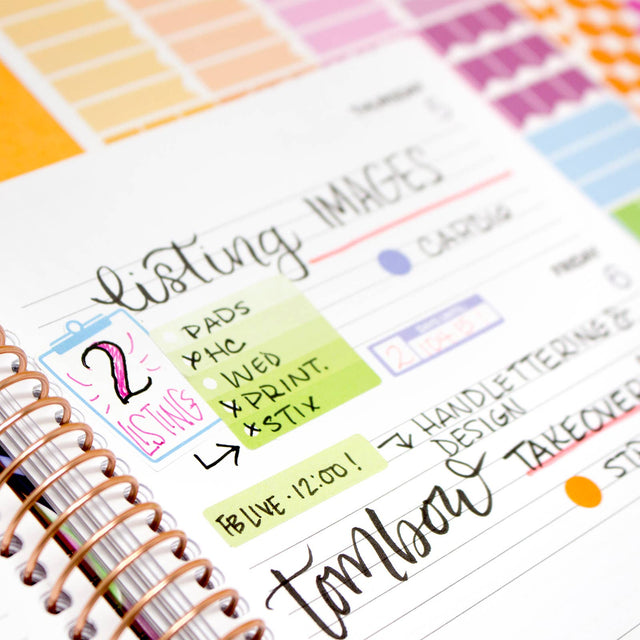 THURSDAY
5
listing IMAGES
CARDIO
2
LISTING
PADS
x HC
WED
x PRINT.
x STIX
FRIDAY
6
HANDLETTERING &
DESIGN
FB LIVE · 12:00!
tombow TAKEOVER